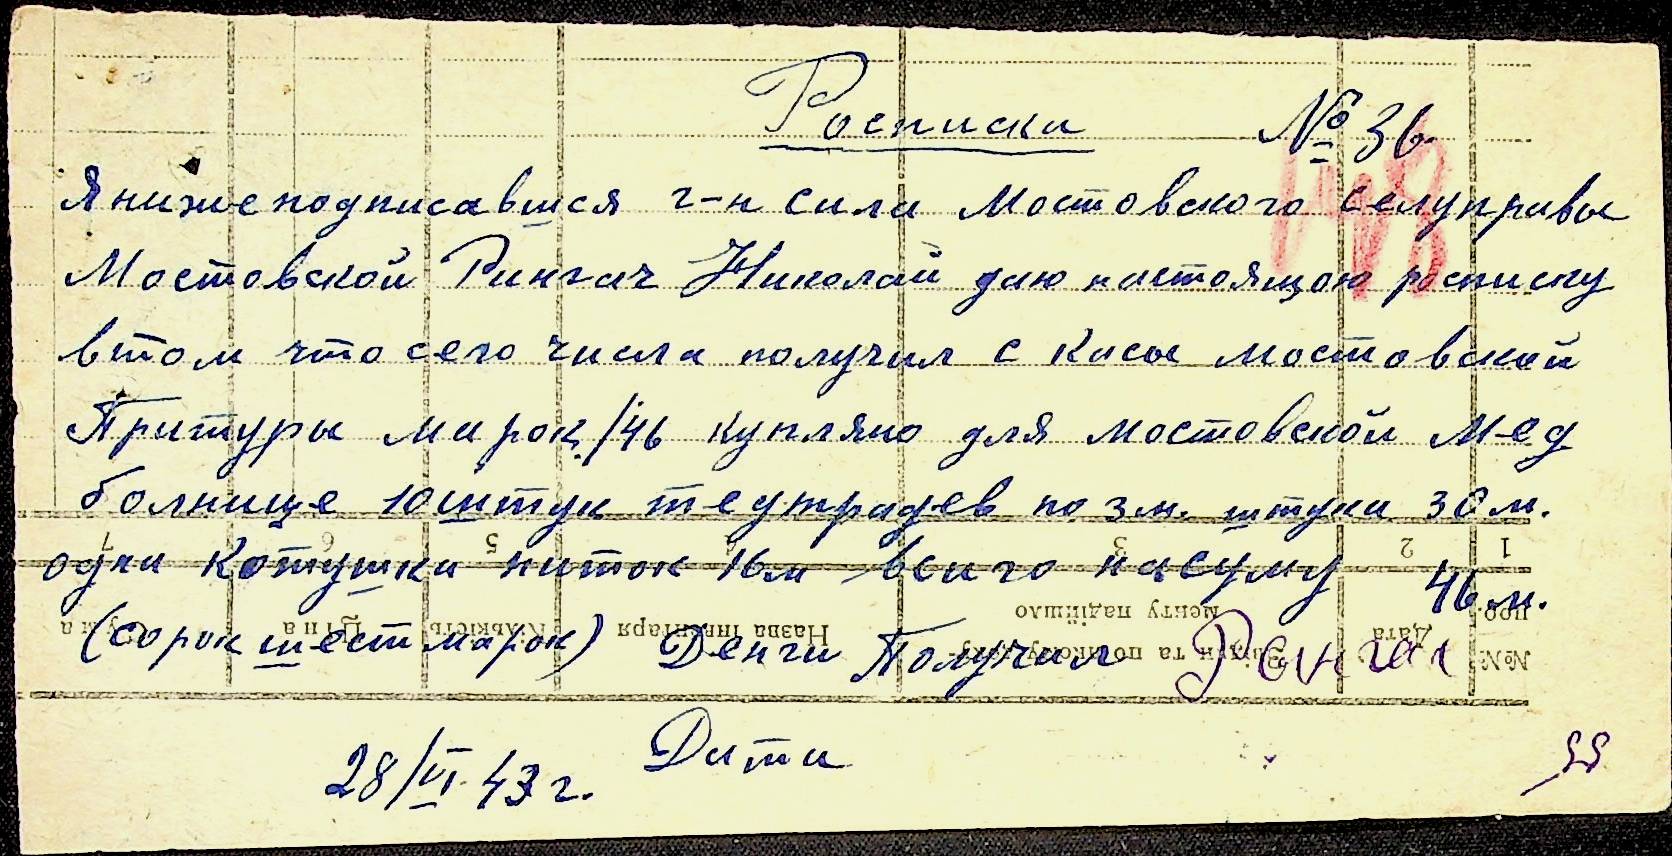 Росписка № 36.
Я нижеподписавшися г-н села Мостовского селуправы
Мостовской Рингач Николай даю настоящою росписку
втом что сего числа получил с касы мостовской
Притуры марок /46 купляно для мостовской мед
болнице 10 штук тедтрадев по 3 м. штука 30 м.
одна котушка ниток 16 м всиго насуму 46 м.
(сорок шест марок) Денги Получил
28/VI 43 г. Дата
1 2 3 5 6 7
№№ пор. Дата Назва інвентаря Кількість Ціна
менту надійшло